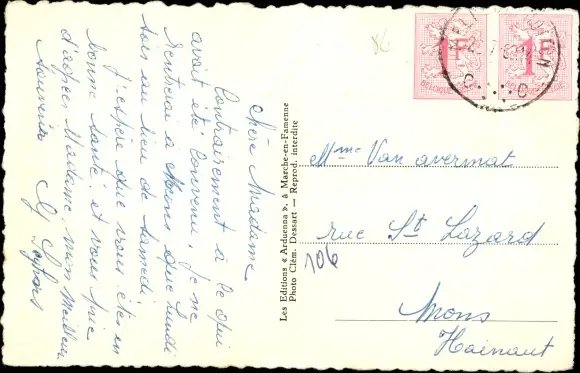 Chère Madame,
Contrairement à ce qui
avait été convenu, je ne
rentrerai à Mons que lundi
soir au lieu de samedi.
J'espère que vous êtes en
bonne santé et vous prie
d'agréer Madame, mon meilleur
souvenir
Les Editions « Arduenna », à Marche-en-Famenne
Photo Clém. Dessart — Reprod. interdite
1F
1F
BELGIQUE
Mme Van avermat
rue St Lazard
106
Mons
Hainaut